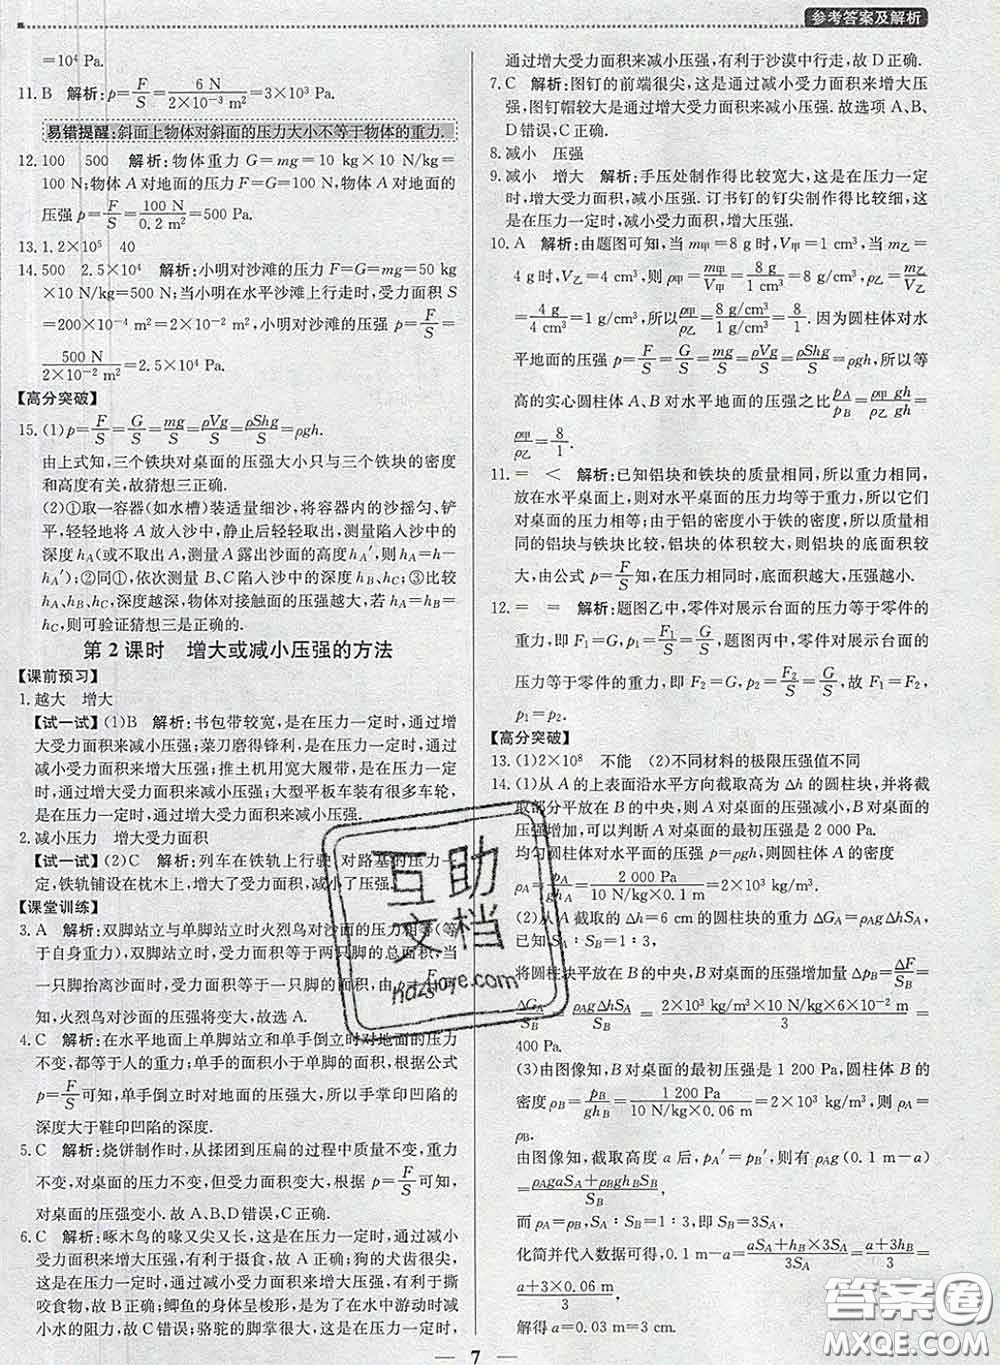 参考答案及解析
=10⁴ Pa.
11. B 解析: p=F/S=6 N/(2×10⁻³ m²)=3×10³ Pa.
易错提醒:斜面上物体对斜面的压力大小不等于物体的重力.
12. 100 500 解析:物体重力 G=mg=10 kg×10 N/kg=
100 N;物体 A 对地面的压力 F=G=100 N;物体 A 对地面
的压强 p=F/S=100 N/0.2 m²=500 Pa.
13. 1.2×10⁵ 40
14. 500 2.5×10⁴ 解析:小明对沙滩的压力 F=G=mg=50 kg
×10 N/kg=500 N;当小明在水平沙滩上行走时,受力面积 S
=200×10⁻⁴ m²=2×10⁻² m²,小明对沙滩的压强 p=F/S=
500 N/(2×10⁻² m²)=2.5×10⁴ Pa.
【高分突破】
15. (1)p=F/S=G/S=mg/S=ρVg/S=ρShg/S=ρgh.
由上式知,三个铁块对桌面的压强大小只与三个铁块的密度
和高度有关,故猜想三正确.
(2)①取一容器(如水槽)装适量细沙,将容器内的沙摇匀、铲
平,轻轻地将 A 放入沙中,静止后轻轻取出,测量陷入沙中的
深度 hA(或不取出 A,测量 A 露出沙面的高度 hA′,则 hA=h-
hA′);②同①,依次测量 B、C 陷入沙中的深度 hB、hC;③比较
hA、hB、hC,深度越深,物体对接触面的压强越大,若 hA=hB=
hC,则可验证猜想三是正确的.
第 2 课时 增大或减小压强的方法
【课前预习】
1. 越大 增大
【试一试】(1)B 解析:书包带较宽,是在压力一定时,通过增
大受力面积来减小压强;菜刀磨得锋利,是在压力一定时,通过
减小受力面积来增大压强;推土机用宽大履带,是在压力一定
时,通过增大受力面积来减小压强;大型平板车装有很多车轮,
是在压力一定时,通过增大受力面积来减小压强.
2. 减小压力 增大受力面积
【试一试】(2)C 解析:列车在铁轨上行驶,对路基的压力一
定,铁轨铺设在枕木上,增大了受力面积,减小了压强.
【课堂训练】
3. A 解析:双脚站立与单脚站立时火烈鸟对沙面的压力相等(等
于自身重力),双脚站立时,受力面积等于两只脚的总面积,当
一只脚抬离沙面时,受力面积等于一只脚的面积,由 p=F/S可
知,火烈鸟对沙面的压强将变大.故选 A.
4. C 解析:在水平地面上单脚站立和单手倒立时对地面的压力
不变,都等于人的重力;单手的面积小于单脚的面积,根据公式
p=F/S可知,单手倒立时对地面的压强大,所以手掌印凹陷的
深度大于鞋印凹陷的深度.
5. C 解析:烧饼制作时,从揉团到压扁的过程中质量不变,重力
不变,对桌面的压力不变,但受力面积变大,根据 p=F/S可知,
对桌面的压强变小.故 A、B、D 错误,C 正确.
6. C 解析:啄木鸟的喙又尖又长,这是在压力一定时,通过减小
受力面积来增大压强,有利于摄食,故 A 正确;狗的犬齿很尖,
这是在压力一定时,通过减小受力面积来增大压强,有利于撕
咬食物,故 B 正确;鲫鱼的身体呈梭形,是为了在水中游动时减
小水的阻力,故 C 错误;骆驼的脚掌很大,这是在压力一定时,
通过增大受力面积来减小压强,有利于沙漠中行走,故 D 正确.
7. C 解析:图钉的前端很尖,这是通过减小受力面积来增大压
强,图钉帽较大是通过增大受力面积来减小压强.故选项 A、B、
D 错误,C 正确.
8. 减小 压强
9. 减小 增大 解析:手压处制作得比较宽大,这是在压力一定
时,增大受力面积,减小压强.订书钉的钉尖制作得比较细,这
是在压力一定时,减小受力面积,增大压强.
10. A 解析:由题图可知,当 m甲=8 g时,V甲=1 cm³,当 m乙=
4 g时,V乙=4 cm³,则 ρ甲=m甲/V甲=8 g/1 cm³=8 g/cm³,ρ乙=m乙/V乙
=4 g/4 cm³=1 g/cm³,所以ρ甲/ρ乙=(8 g/cm³)/(1 g/cm³)=8/1.因为圆柱体对水
平地面的压强 p=F/S=G/S=mg/S=ρVg/S=ρShg/S=ρgh,所以等
高的实心圆柱体 A、B 对水平地面的压强之比pA/pB=ρ甲gh/ρ乙gh=
ρ甲/ρ乙=8/1.
11. = < 解析:已知铝块和铁块的质量相同,所以重力相同,
放在水平桌面上,则对水平桌面的压力均等于重力,所以它们
对桌面的压力相同;由于铝的密度小于铁的密度,所以质量相
同的铝块与铁块比较,铝块的体积较大,则铝块的底面积较
大,由公式 p=F/S知,在压力相同时,底面积越大,压强越小.
12. = = 解析:题图乙中,零件对展示台面的压力等于零件的
重力,即 F₁=G,p₁=F₁/S=G/S;题图丙中,零件对展示台面的
压力等于零件的重力,即 F₂=G,p₂=F₂/S=G/S,故 F₁=F₂,
p₁=p₂.
【高分突破】
13. (1)2×10⁸ 不能 (2)不同材料的极限压强值不同
14. (1)从 A 的上表面沿水平方向截取高为 Δh 的圆柱块,并将截
取部分平放在 B 的中央,则 A 对桌面的压强减小,B 对桌面的
压强增加,可以判断 A 对桌面的最初压强是 2 000 Pa.
均匀圆柱体对水平面的压强 p=ρgh,则圆柱体 A 的密度
=2 000 Pa/(10 N/kg×0.1 m)=2×10³ kg/m³.
(2)从 A 截取的 Δh=6 cm 的圆柱块的重力 ΔGA=ρAgΔhSA,
已知 SA:SB=1:3,
将圆柱块平放在 B 的中央,B 对桌面的压强增加量 ΔpB=ΔF/SB
=ΔGA/SB=ρAgΔhSA/SB=(2×10³ kg/m³×10 N/kg×6×10⁻² m)/3=
400 Pa.
(3)由图像知,B 对桌面的最初压强是 1 200 Pa,圆柱体 B 的
密度 ρB=pB/ghB=1 200 Pa/(10 N/kg×0.06 m)=2×10³ kg/m³,所以 ρA=
ρB.
由图像知,截取高度 a 后,pA′=pB′,则有 ρAg(0.1 m-a)=
(ρAgaSA+ρBghBSB)/SB,
而 ρA=ρB,SA:SB=1:3,即 SB=3SA,
化简并代入数据可得,0.1 m-a=(aSA+hB×3SA)/3SA=(a+3hB)/3=
(a+3×0.06 m)/3,
解得 a=0.03 m=3 cm.
互助
文档
hdzslore.com
答案圈
MXQE.COM
7